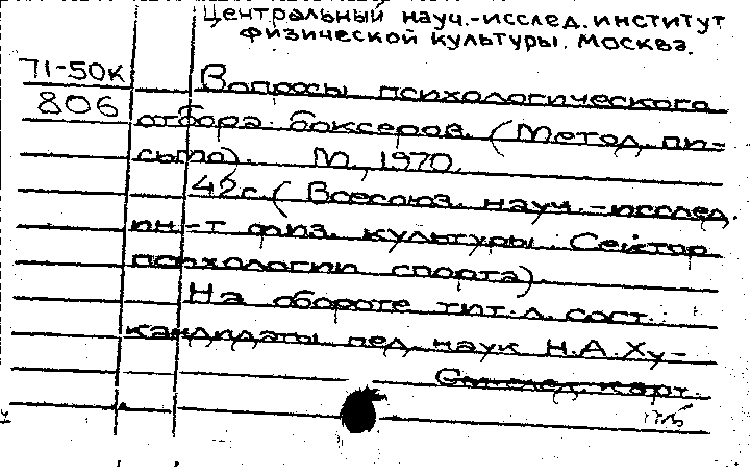 Центральный науч.-исслед. институт
физической культуры. Москва.
71-50к
806
Вопросы психологического
отбора боксеров. (Метод. пи-
сьмо). М., 1970.
42с. (Всесоюз. науч.-исслед.
ин-т физ. культуры. Сектор
психологии спорта)
На обороте тит. л. сост.:
кандидаты пед. наук Н.А. Ху-
См. след. карт.